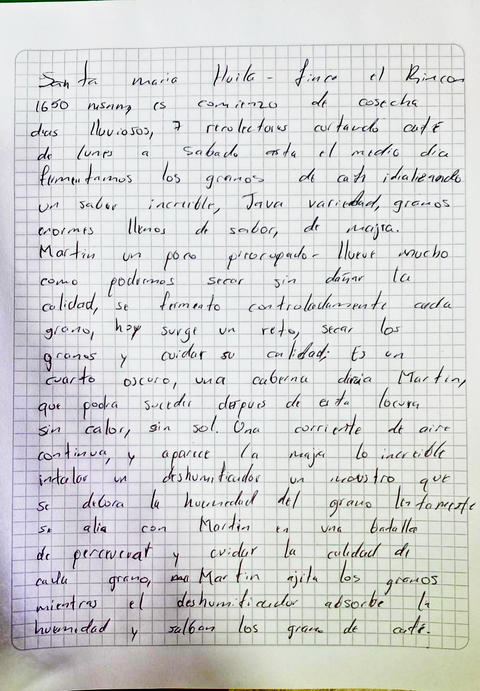 Santa maria Huila - finca el Rincon
1650 msnm, es comienzo de cosecha
dias lluviosos, 7 recolectores cortando café
de lunes a sabado asta el medio dia
fermentamos los granos de café idializando
un sabor increible, Java variedad, granos
enormes llenos de sabor, de majia.
Martin un poco preocupado - llueve mucho
como podermos secar sin dañar la
calidad, se fermento controladamente cada
grano, hoy surge un reto, secar los
granos y cuidar su calidad; Es un
cuarto oscuro, una caberna diria Martin,
que podra suceder despues de esta locura
sin calor, sin sol. Una corriente de aire
continua, y aparece la majia lo increible
intalar un deshumificador un moustro que
se debora la humedad del grano lentamente
se alia con Martin en una batalla
de perceverar y cuidar la calidad de
cada grano, Martin ajita los granos
mientras el deshumificador absorbe la
humidad y salban los grano de café.